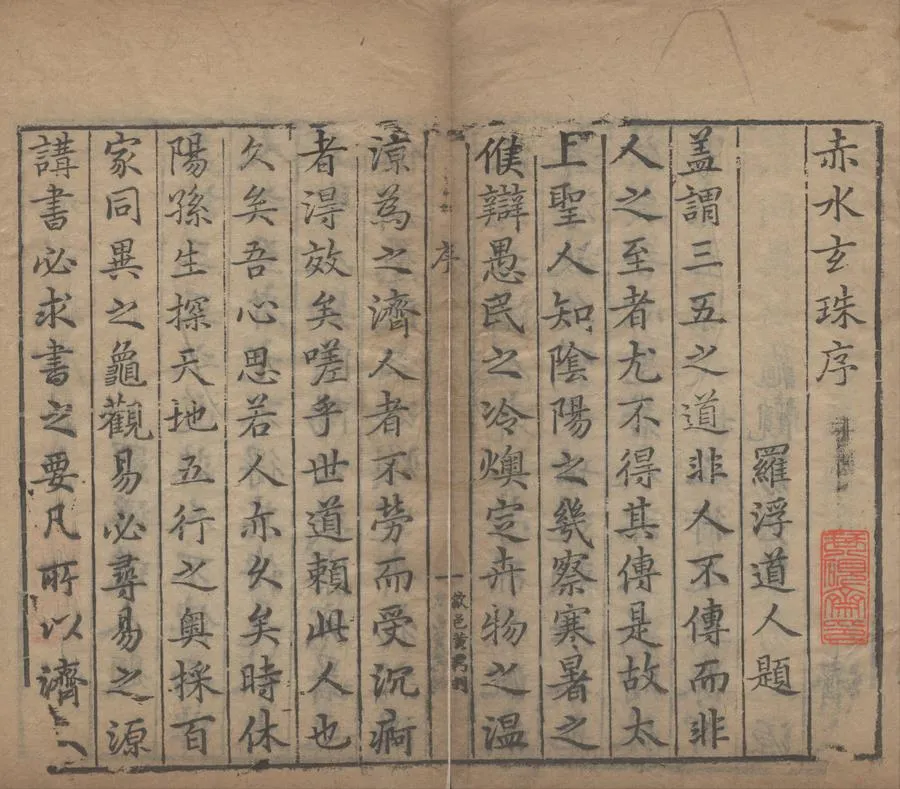 赤水玄珠序
羅浮道人題
盖謂三五之道非人不傳而非
人之至者尤不得其傳是故太
上聖人知陰陽之幾察寒暑之
候辯愚民之冷燠定卉物之温
序
一
歙邑黄
涼為之濟人者不勞而受沉痾
者得效矣嗟乎世道頼此人也
久矣吾心思若人亦久矣時休
陽孫生探天地五行之奥採百
家同異之龜觀易必尋易之源
講書必求書之要凡所以濟